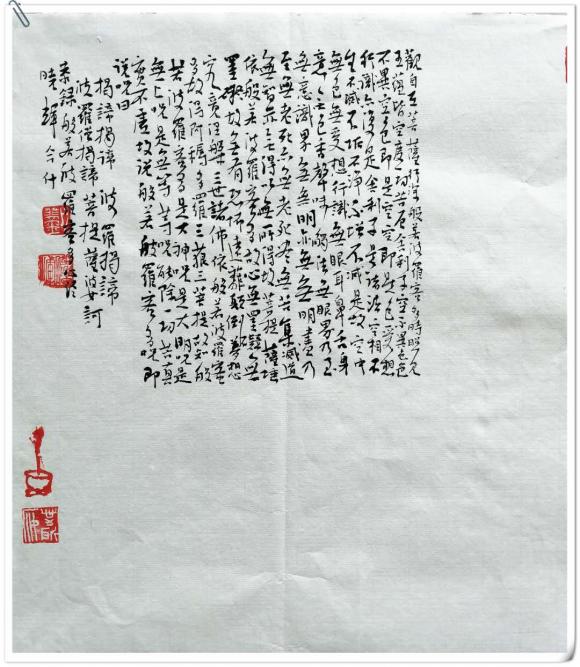 觀自在菩薩行深般若波羅蜜多時照見
五蘊皆空度一切苦厄舍利子空不異色色
不異空色即是空空即是色受想
行識亦復是舍利子是諸法空相不
生不滅不垢不淨不增不減是故空中
無色無受想行識無眼耳鼻舌身
意無色聲香味觸法無眼界乃至
無意識界無無明亦無無明盡乃
至無老死亦無老死盡無苦集滅道
無智亦無得以無所得故菩提薩埵
依般若波羅蜜多故心無罣礙無
罣礙故無有恐怖遠離顛倒夢想
究竟涅槃三世諸佛依般若波羅蜜
多故得阿耨多羅三藐三菩提故知般
若波羅蜜多是大神咒是大明咒是
無上咒是無等等咒能除一切苦真
實不虛故說般若般羅蜜多咒即
說咒曰
揭諦揭諦 波羅揭諦
波羅僧揭諦 菩提薩婆訶
恭錄般若波羅蜜多心經
曉輝合什